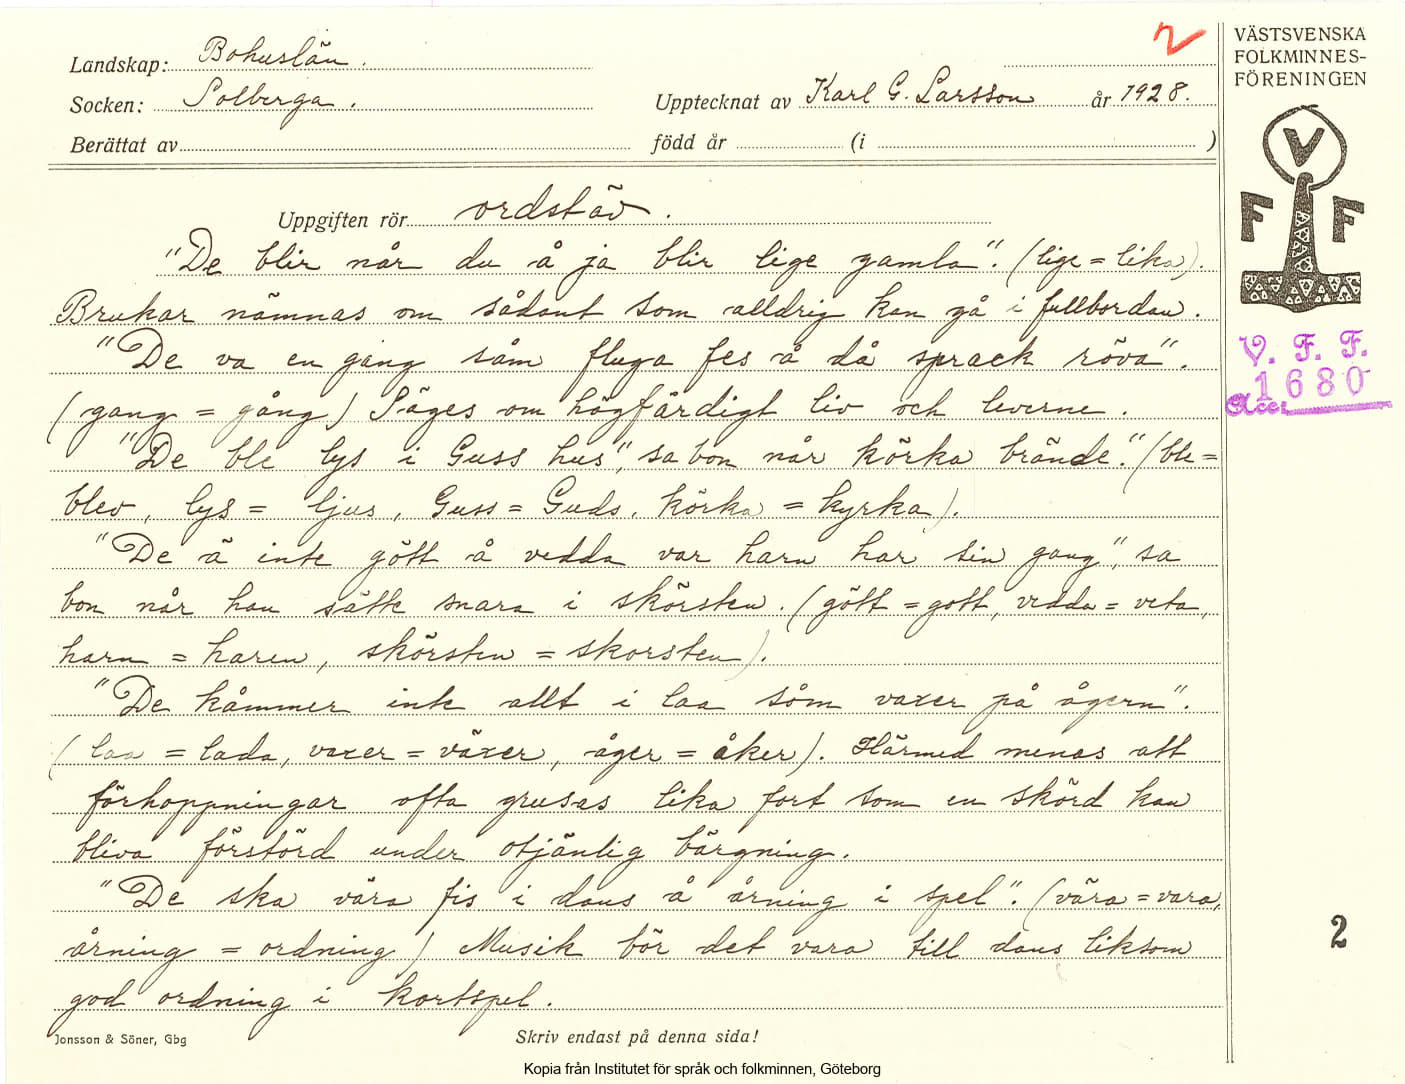 2
VÄSTSVENSKA
FOLKMINNES-
FÖRENINGEN
Landskap: Bohuslän.
Socken: Solberga.
Upptecknat av Karl G. Larsson år 1928.
Berättat av född år (i )
V
F F
Uppgiften rör ordstäv.
"De blir når du å ja blir lige gamla". (lige = lika).
Brukar nämnas om sådant som alldrig kan gå i fullbordan.
"De va en gang såm fluga fes å då sprack röva".
(gang = gång) Säges om högfärdigt liv och leverne.
"De ble lys i Guss hus", sa bon når körka brände". (ble =
blev, lys = ljus, Guss = Guds, körka = kyrka).
"De ä inte gött å vedda var harn har sin gang", sa
bon når han sätte snara i skörsten. (gött = gott, vedda = veta,
harn = haren, skörsten = skorsten).
"De kåmmer inte allt i laa såm vaxer på ågern".
(laa = lada, vaxer = växer, åger = åker). Härmed menas att
förhoppningar ofta grusas lika fort som en skörd kan
bliva förstörd under otjänlig bärgning.
"De ska våra fis i dans å årning i spel". (våra = vara,
årning = ordning) Musik bör det vara till dans liksom
god ordning i kortspel.
V. F. F.
Acc: 1680
2
Jonsson & Söner, Gbg
Skriv endast på denna sida!
Kopia från Institutet för språk och folkminnen, Göteborg